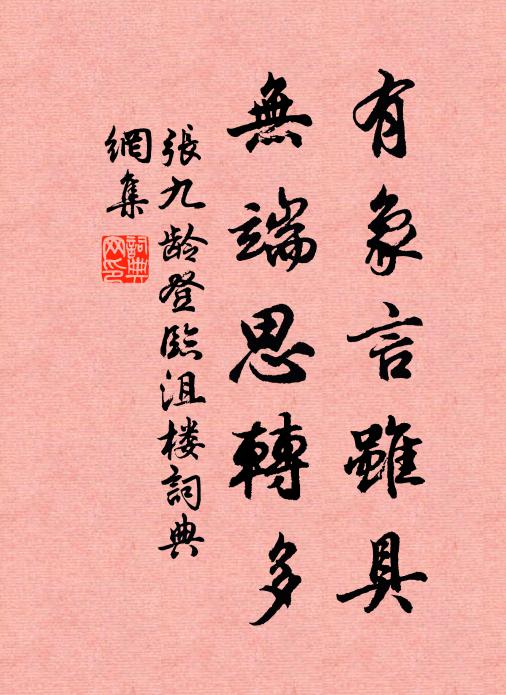 有象言雖具
無端思轉多
張九龄登臨沮楼詞典
網集
詞典
网印